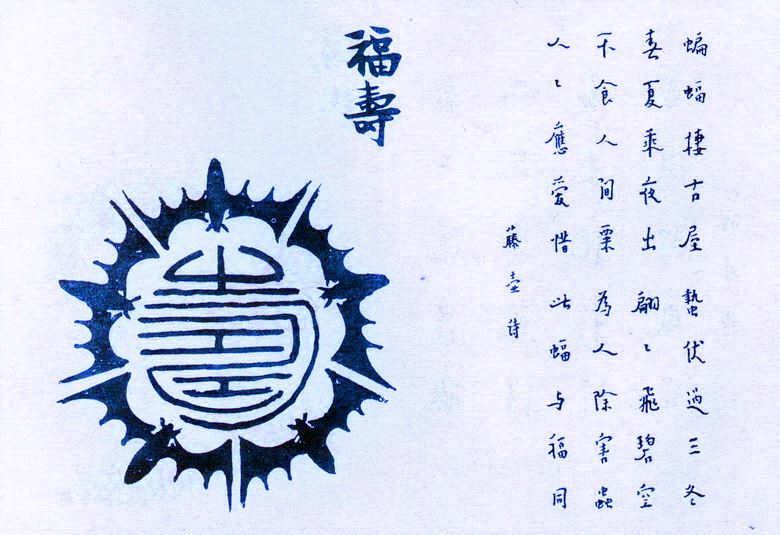 蝙蝠棲古屋蟄伏過三冬
春夏乘夜出翩〻飛碧空
不食人間粟為人除害蟲
人〻應愛惜此蝠与福同
藤壺詩
福壽
壽